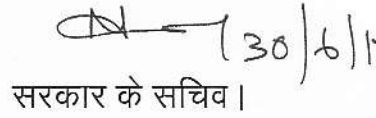 30/6/1
सरकार के सचिव।